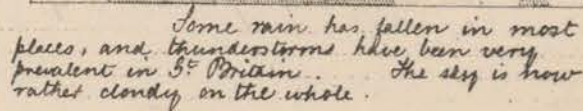 Some rain has fallen in most
places, and thunderstorms have been very
prevalent in Gt. Britain. . The sky is now
rather cloudy on the whole.